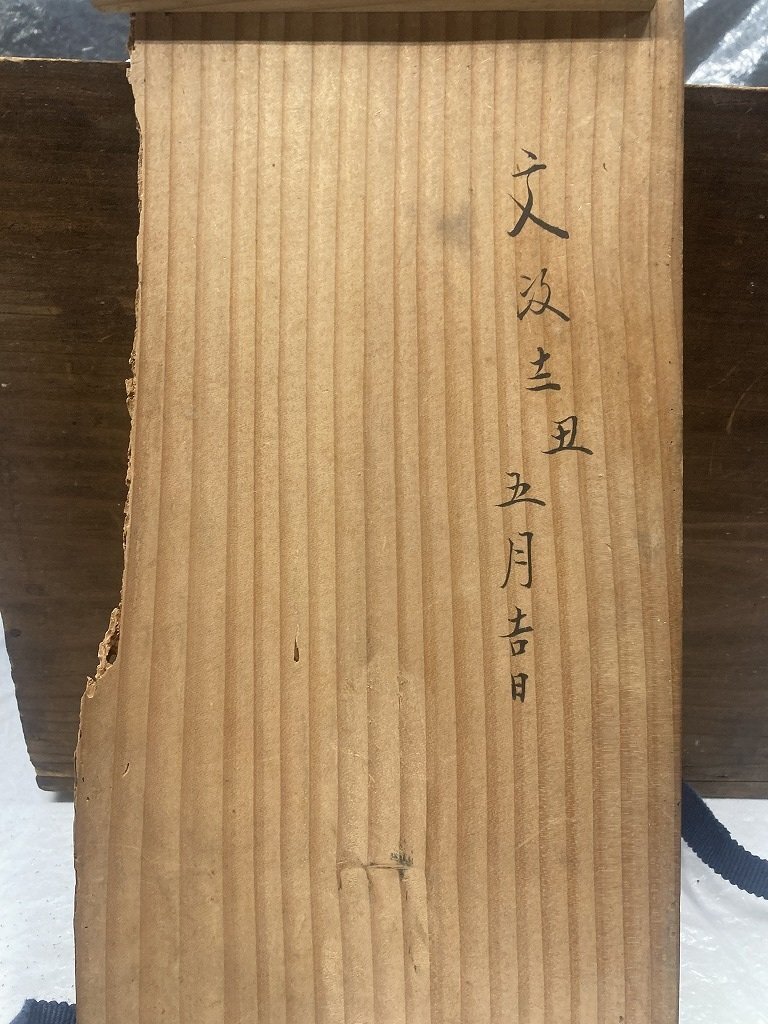 文政十二丑五月吉日